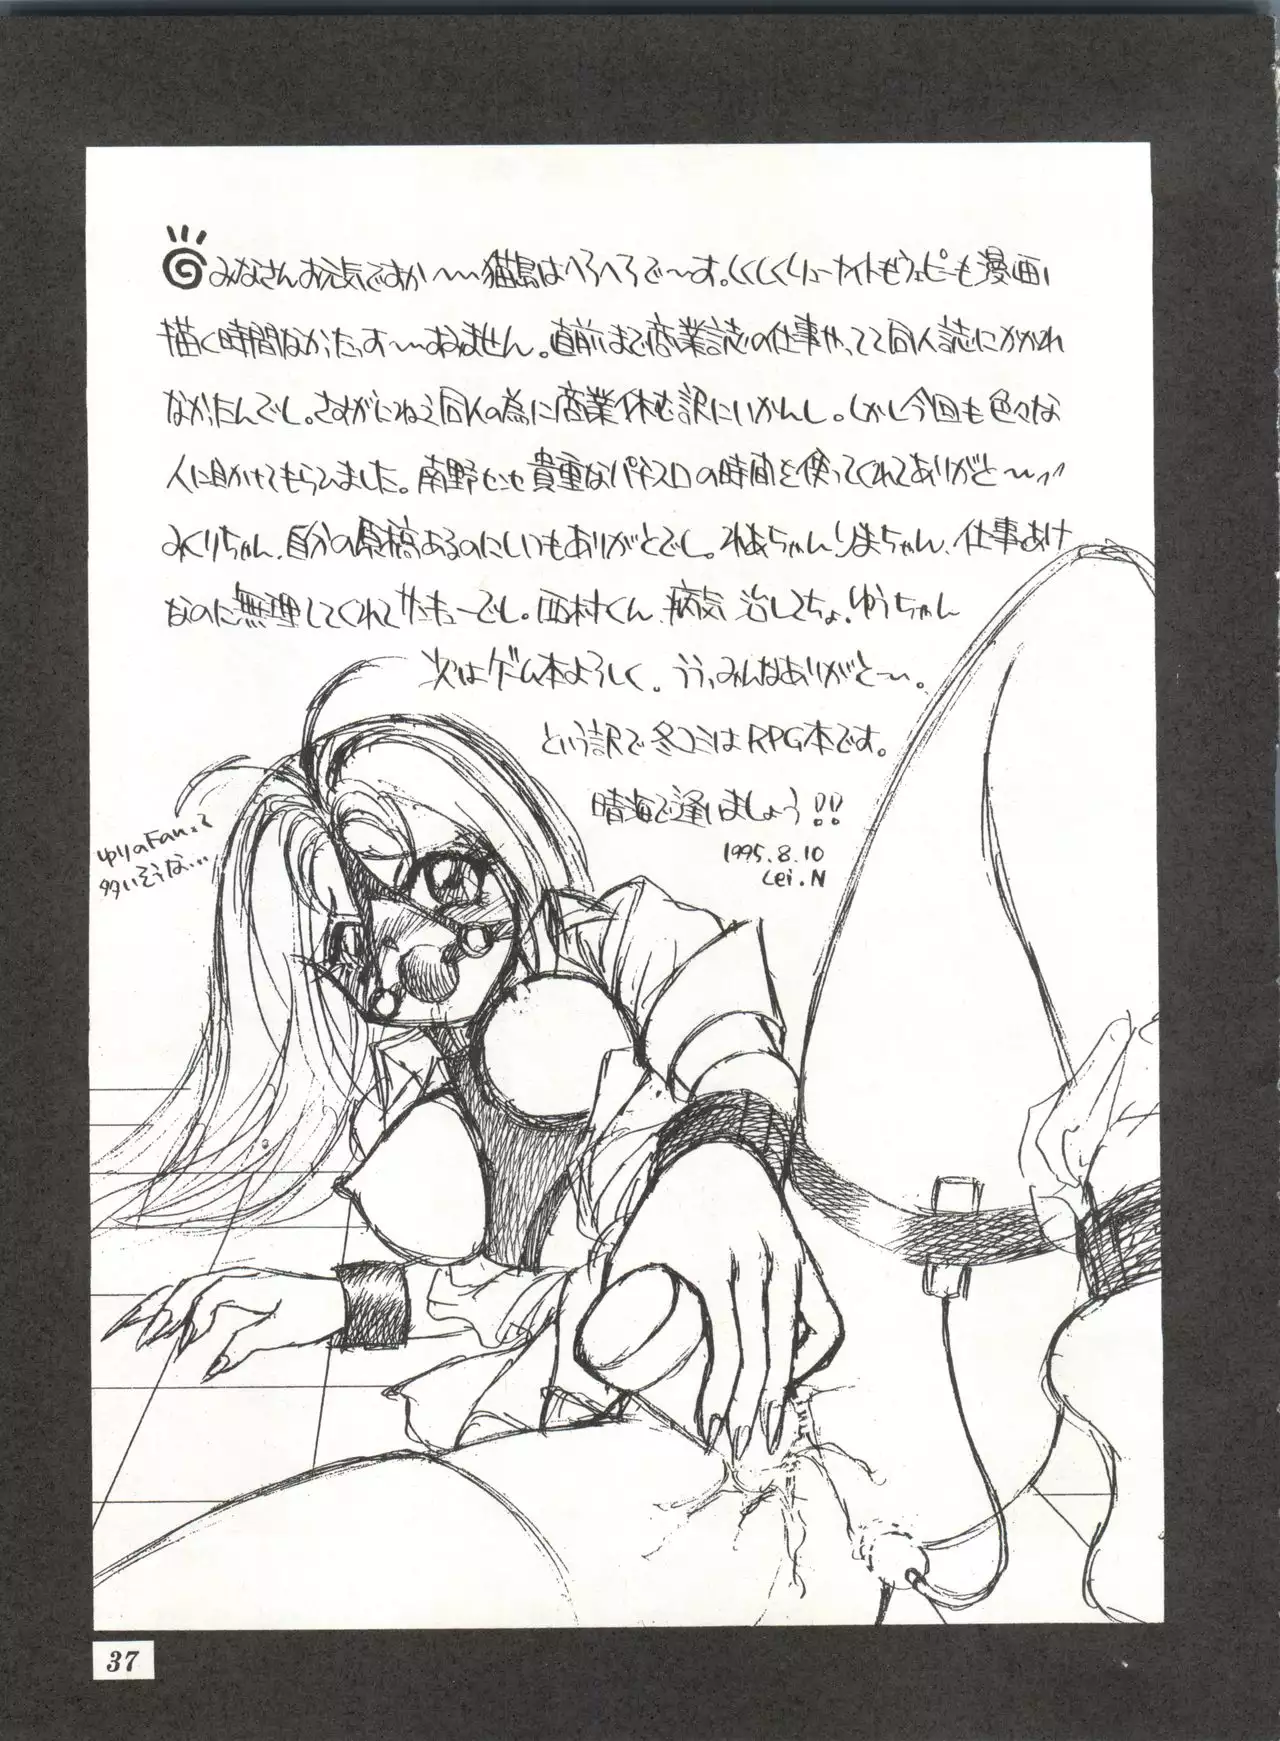 みなさんお元気ですか〜〜猫島はへろへろで〜す。しくしくリューナイトもウェピーも漫画
描く時間なかったっす〜〜すいません。直前まで商業誌の仕事やってて同人誌にかかれ
なかったんでし。さすがにねえ同人の為に商業休む訳にいかんし。しかし今回も色々な
人に助けてもらいました。南野センセ貴重なパチスロの時間を使ってくれてありがと〜
みくりちゃん、自分の原稿あるのにいつもありがとでし。ちゃん、仕事あけ
なのに無理してくれてサンキューでし。西村くん、病気治してちょ。ゆうちゃん
次はゲーム本よろしく。ううっみんなありがと〜。
という訳で冬コミはRPG本です。
晴海で逢いましょう!!
1995.8.10
Lei.N
ゆりのFanって
多いそうな...
37